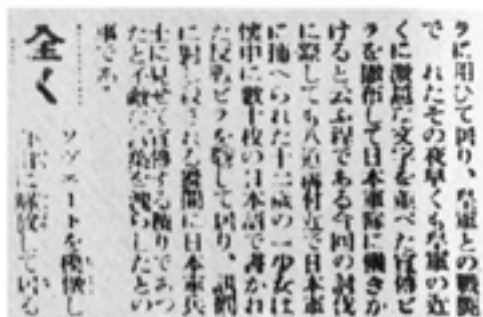 ラに用ひて居り、皇軍との戦闘
で れたその夜早くも皇軍の近
くに激越な文字を並べた宣傳ビ
ラを撒布して日本軍隊に働きか
けると云ふ程である今回の討伐
に際しても八道河村近で日本軍
に捕へられた十二歳の一少女は
懐中に数十枚の日本語で書かれ
た反戦ビラを蔵して居り、
に射殺される瞬間に日本軍兵
士に見せて宣傳する積りであつ
たと不敵な言葉を残らしたとの
事である
全く
ソヴエートを模倣し
して居る